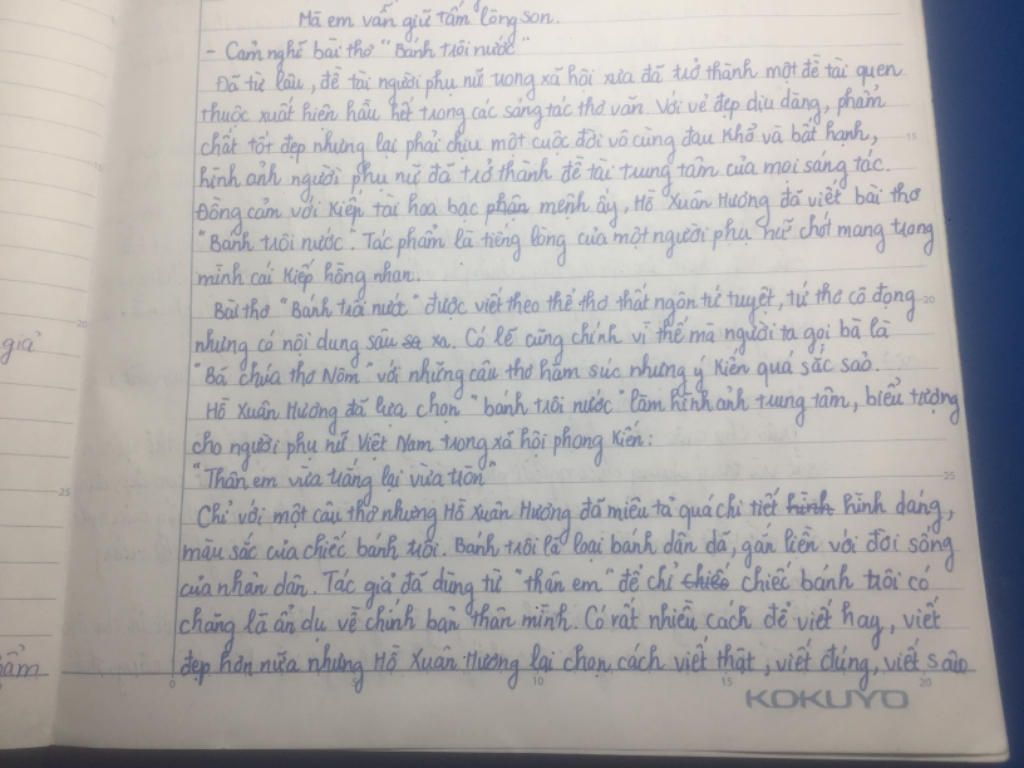 Mà em vẫn giữ tấm lòng son.
- Cảm nghĩ bài thơ "Bánh trôi nước"
Đã từ lâu, đề tài người phụ nữ trong xã hội xưa đã trở thành một đề tài quen
thuộc xuất hiện hầu hết trong các sáng tác thơ văn. Với vẻ đẹp dịu dàng, phẩm
chất tốt đẹp nhưng lại phải chịu một cuộc đời vô cùng đau khổ và bất hạnh,
hình ảnh người phụ nữ đã trở thành đề tài trung tâm của mọi sáng tác.
Đồng cảm với kiếp tài hoa bạc phận mệnh ấy, Hồ Xuân Hương đã viết bài thơ
"Bánh trôi nước". Tác phẩm là tiếng lòng của một người phụ nữ chót mang trong
mình cái kiếp hồng nhan.
Bài thơ "Bánh trôi nước" được viết theo thể thơ thất ngôn tứ tuyệt, tứ thơ cô đọng
nhưng có nội dung sâu sa xa. Có lẽ cũng chính vì thế mà người ta gọi bà là
"Bà chúa thơ Nôm" với những câu thơ hàm súc nhưng ý kiến quá sắc sảo.
Hồ Xuân Hương đã lựa chọn "bánh trôi nước" làm hình ảnh trung tâm, biểu tượng
cho người phụ nữ Việt Nam trong xã hội phong kiến:
"Thân em vừa trắng lại vừa tròn"
Chỉ với một câu thơ nhưng Hồ Xuân Hương đã miêu tả quá chi tiết hình hình dáng,
màu sắc của chiếc bánh trôi. Bánh trôi là loại bánh dân dã, gắn liền với đời sống
của nhân dân. Tác giả đã dùng từ "thân em" để chỉ chiếc chiếc bánh trôi có
chăng là ẩn dụ về chính bản thân mình. Có rất nhiều cách để viết hay, viết
đẹp hơn nữa nhưng Hồ Xuân Hương lại chọn cách viết thật, viết đúng, viết sao
giả
15
20
20
25
25
0
10
15
20
KOKUYO